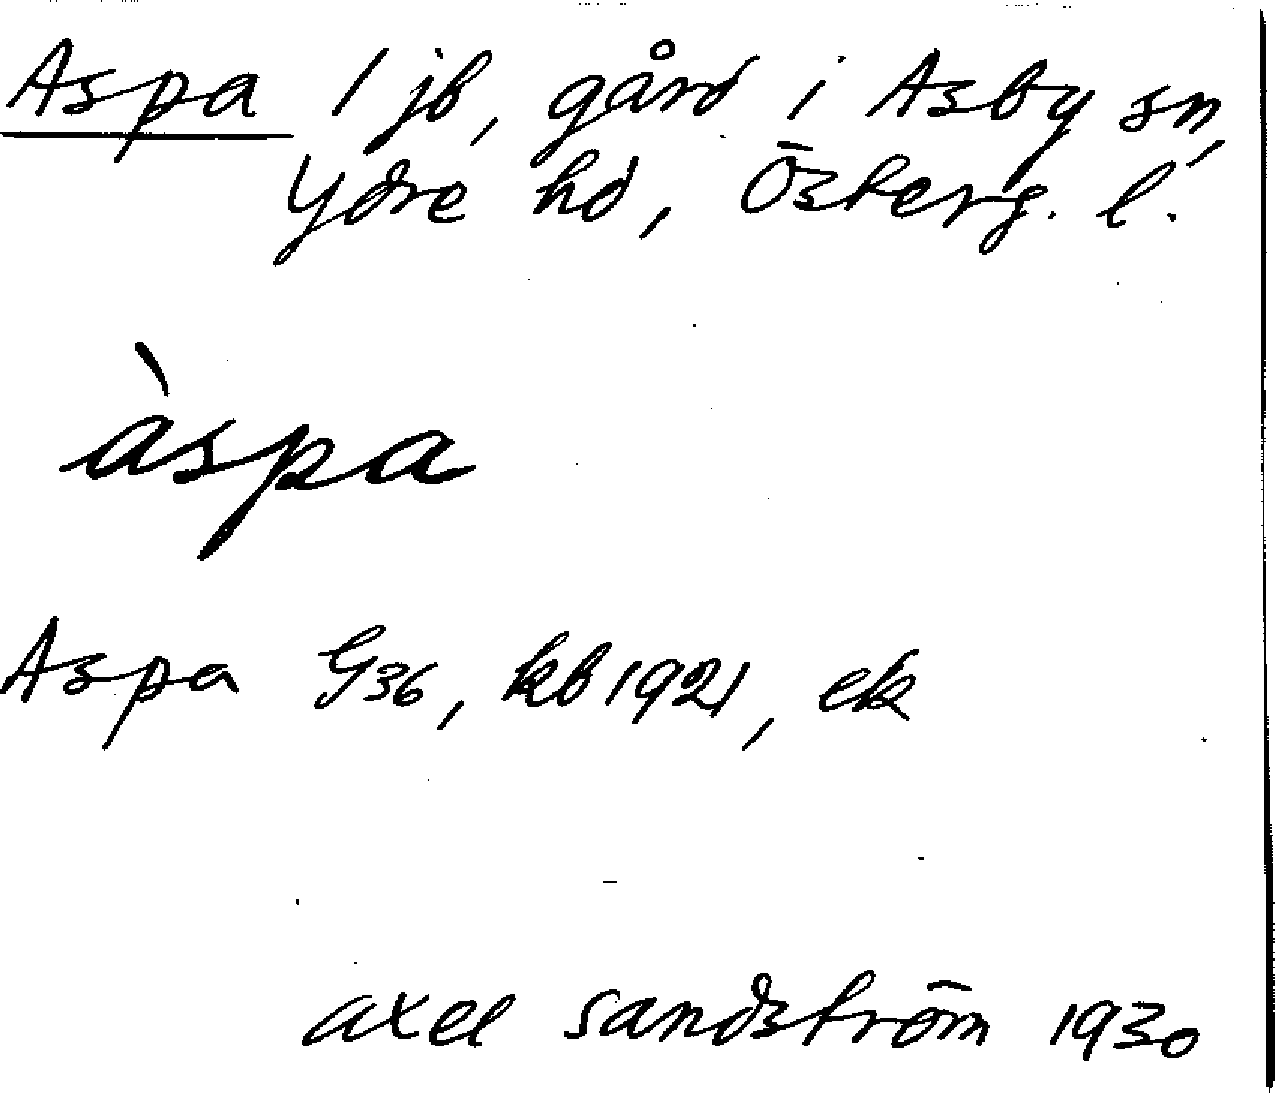 Aspa 1 jb, gård i Asby sn,
Ydre hd, Österg. l.
àspa
Aspa G36, kb 1921, ek
axel sandström 1930